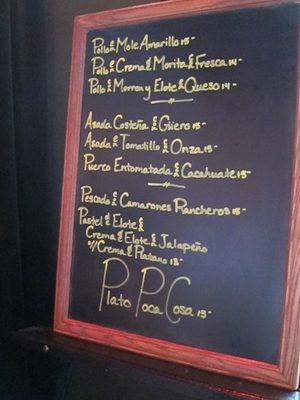 Pollo & Mole Amarillo 15-
Pollo & Crema & Morita & Fresca 14-
Pollo & Morron y Elote & Queso 14-
Asada Costeña & Güero 15-
Asada & Tomatillo & Onza 15-
Puerco Entomatada & Cacahuate 15-
Pescado & Camarones Rancheros 15-
Pastel & Elote &
Crema & Elote & Jalapeño
w/ Crema & Platano 13-
Plato Poca Cosa 15-